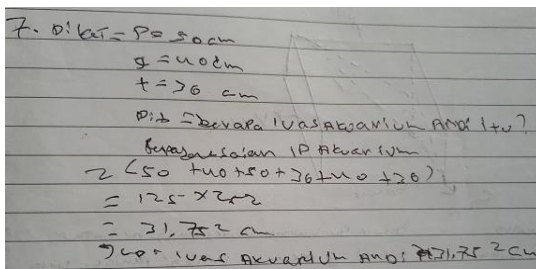 7. Diket = P = 50 cm
l = 40 cm
t = 36 cm
Dit = berapa luas Akuarium Andi itu?
LP Akuarium
2 (50 + 40 + 50 + 36 + 40 + 36)
= 125 × 252
= 31,75² cm
luas Akuarium Andi 31,75² cm